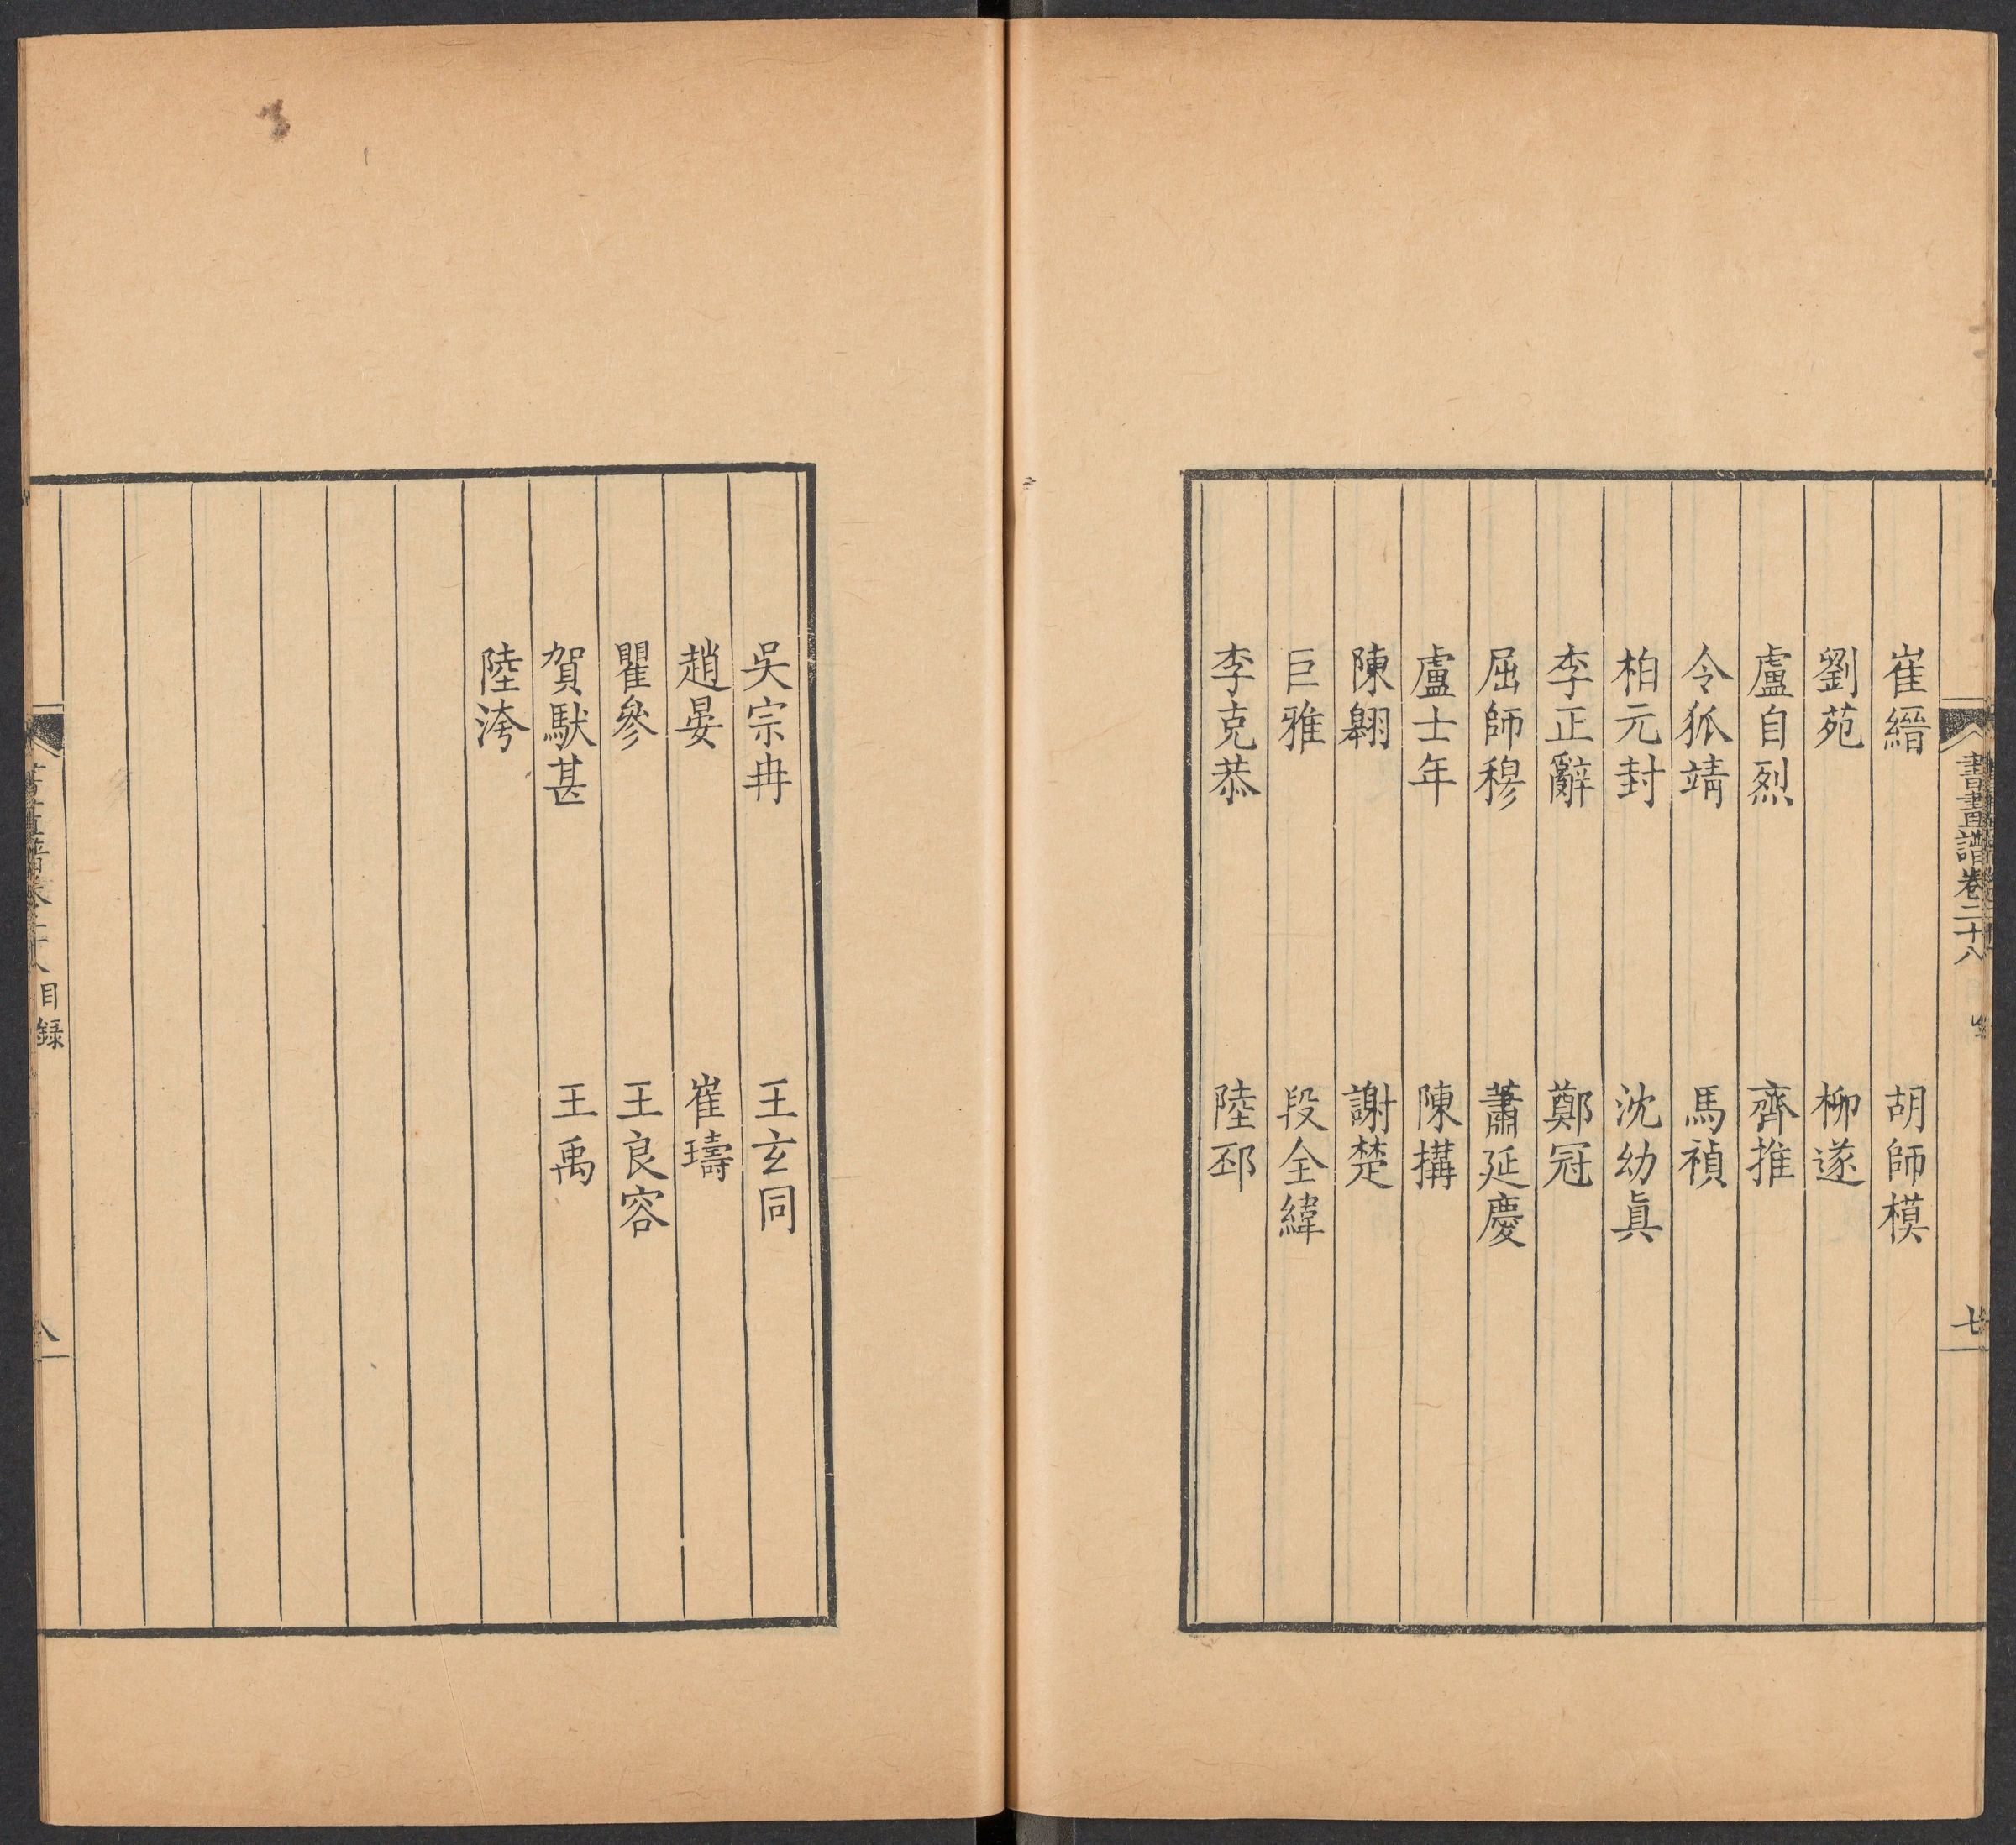 書畫譜卷二十八
七
崔縉 胡師模
劉苑 柳遂
盧自烈 齊推
令狐靖 馬禎
柏元封 沈幼眞
李正辭 鄭冠
屈師穆 蕭延慶
盧士年 陳搆
陳翱 謝楚
巨雅 段全緯
李克恭 陸邳
吳宗冉 王玄同
趙晏 崔璹
瞿參 王良容
賀馱甚 王禹
陸洿
目錄
八